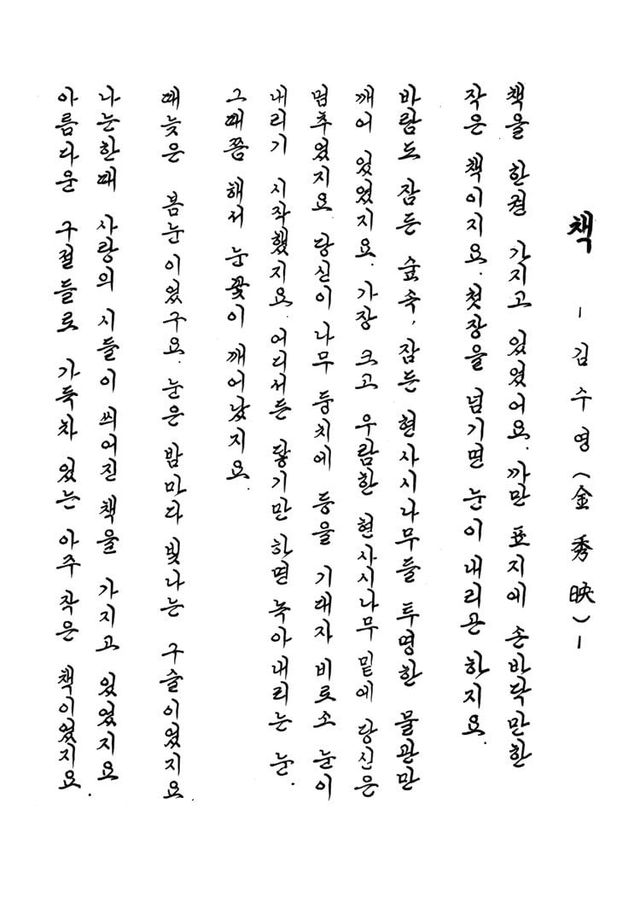 책
- 김수영 (金秀映) -
책을 한권 가지고 있었어요. 까만 표지에 손바닥만한
작은 책이지요. 첫장을 넘기면 눈이 내리곤 하지요.
바람도 잠든 숲속, 잠든 현사시나무들 투명한 물관만
깨어 있었지요. 가장 크고 우람한 현사시나무 밑에 당신은
멈추었지요. 당신이 나무 둥치에 등을 기대자 비로소 눈이
내리기 시작했지요. 어디서든 닿기만 하면 녹아내리는 눈.
그때쯤 해서 눈꽃이 깨어났지요.
때늦은 봄눈이었구요. 눈은 밤마다 빛나는 구슬이었지요.
나는한때 사랑의 시들이 씌어진 책을 가지고 있었지요.
아름다운 구절들로 가득차 있는 아주 작은 책이었지요.